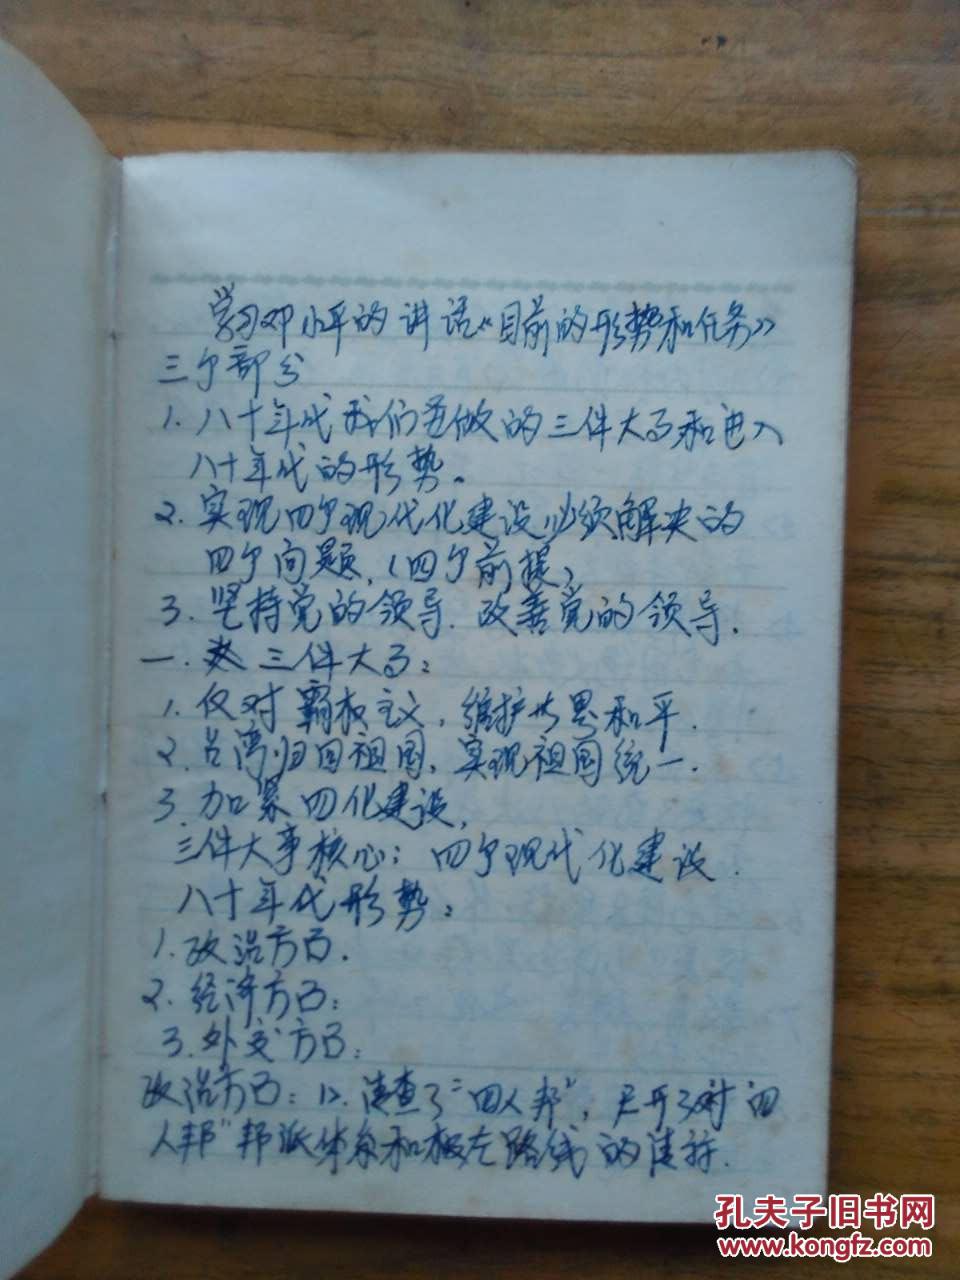 学习邓小平的讲话《目前的形势和任务》
三个部分
1. 八十年代我们要做的三件大事和进入
八十年代的形势。
2. 实现四个现代化建设必须解决的
四个问题,(四个前提)
3. 坚持党的领导.改善党的领导.
一. 三件大事:
1. 反对霸权主义,维护世界和平.
2. 台湾归回祖国,实现祖国统一.
3. 加紧四化建设,
三件大事核心:四个现代化建设.
八十年代形势:
1. 政治方面.
2. 经济方面:
3. 外交方面:
政治方面:1>. 清查了“四人邦”,展开了对“四
人邦”邦派体系和极左路线的清
孔夫子旧书网
www.kongfz.com